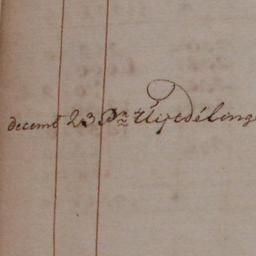 decemb 23 Pr Uijtdéling